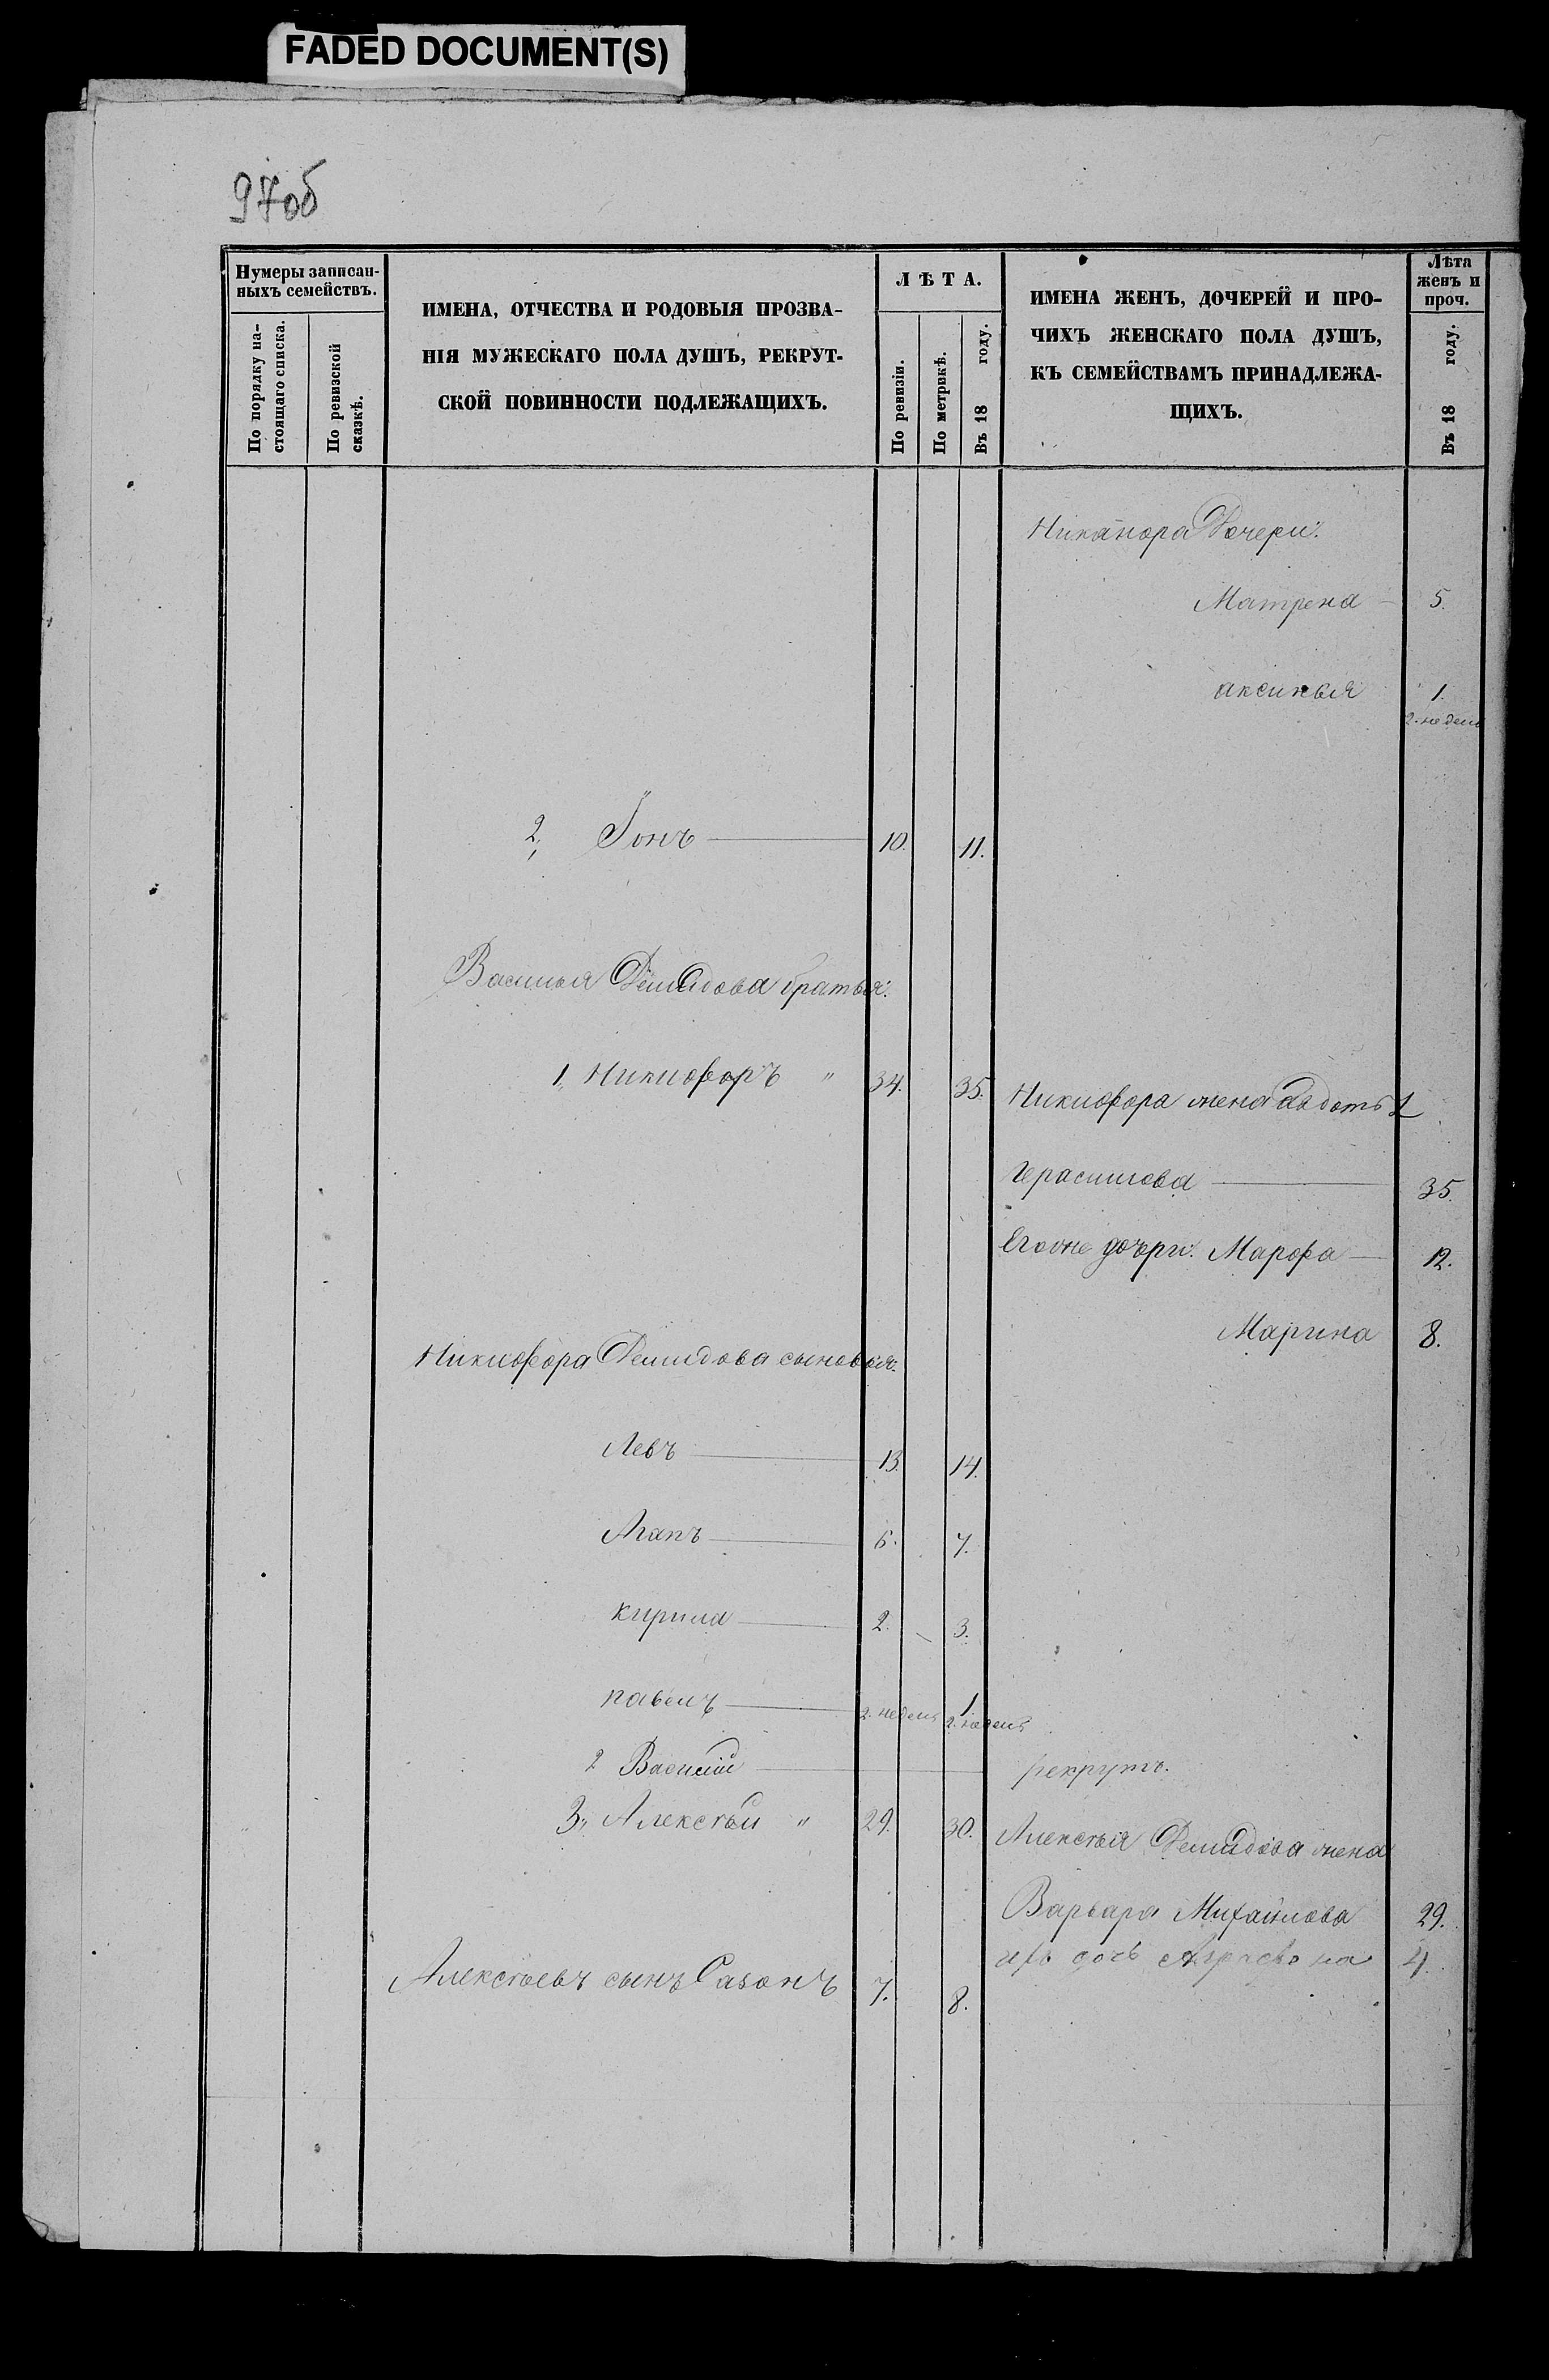 FADED DOCUMENT(S)
97об
Нумеры записан-
ныхъ семействъ.
По порядку на-
стоящаго списка.
По ревизской
сказкѣ.
ИМЕНА, ОТЧЕСТВА И РОДОВЫЯ ПРОЗВА-
НІЯ МУЖЕСКАГО ПОЛА ДУШЪ, РЕКРУТ-
СКОЙ ПОВИННОСТИ ПОДЛЕЖАЩИХЪ.
ЛѢТА.
По ревизіи.
По метрикѣ.
Въ 18 году.
ИМЕНА ЖЕНЪ, ДОЧЕРЕЙ И ПРО-
ЧИХЪ ЖЕНСКАГО ПОЛА ДУШЪ,
КЪ СЕМЕЙСТВАМЪ ПРИНАДЛЕЖА-
ЩИХЪ.
Лѣта
женъ и
проч.
Въ 18 году.
Никанора Дочери:
Матрена 5.
аксинья 1.
2. недель
2, Іонъ 10. 11.
Василья Демидова братья:
1, Никифоръ " 34. 35. Никифора жена авдотья
герасимова 35.
дочери. Марфа 12.
Марина 8.
Никифора Демидова сыновья:
Левъ 13. 14.
Агапъ 6. 7.
кирила 2. 3.
павелъ 2. недель 1
2. недель
2 Василій рекрутъ.
3, Алексѣй " 29. 30. Алексѣя Демидова жена
Варвара Михайлова 29.
ихъ дочь 4.
Алексѣевъ сынъ Сазонъ 7. 8.